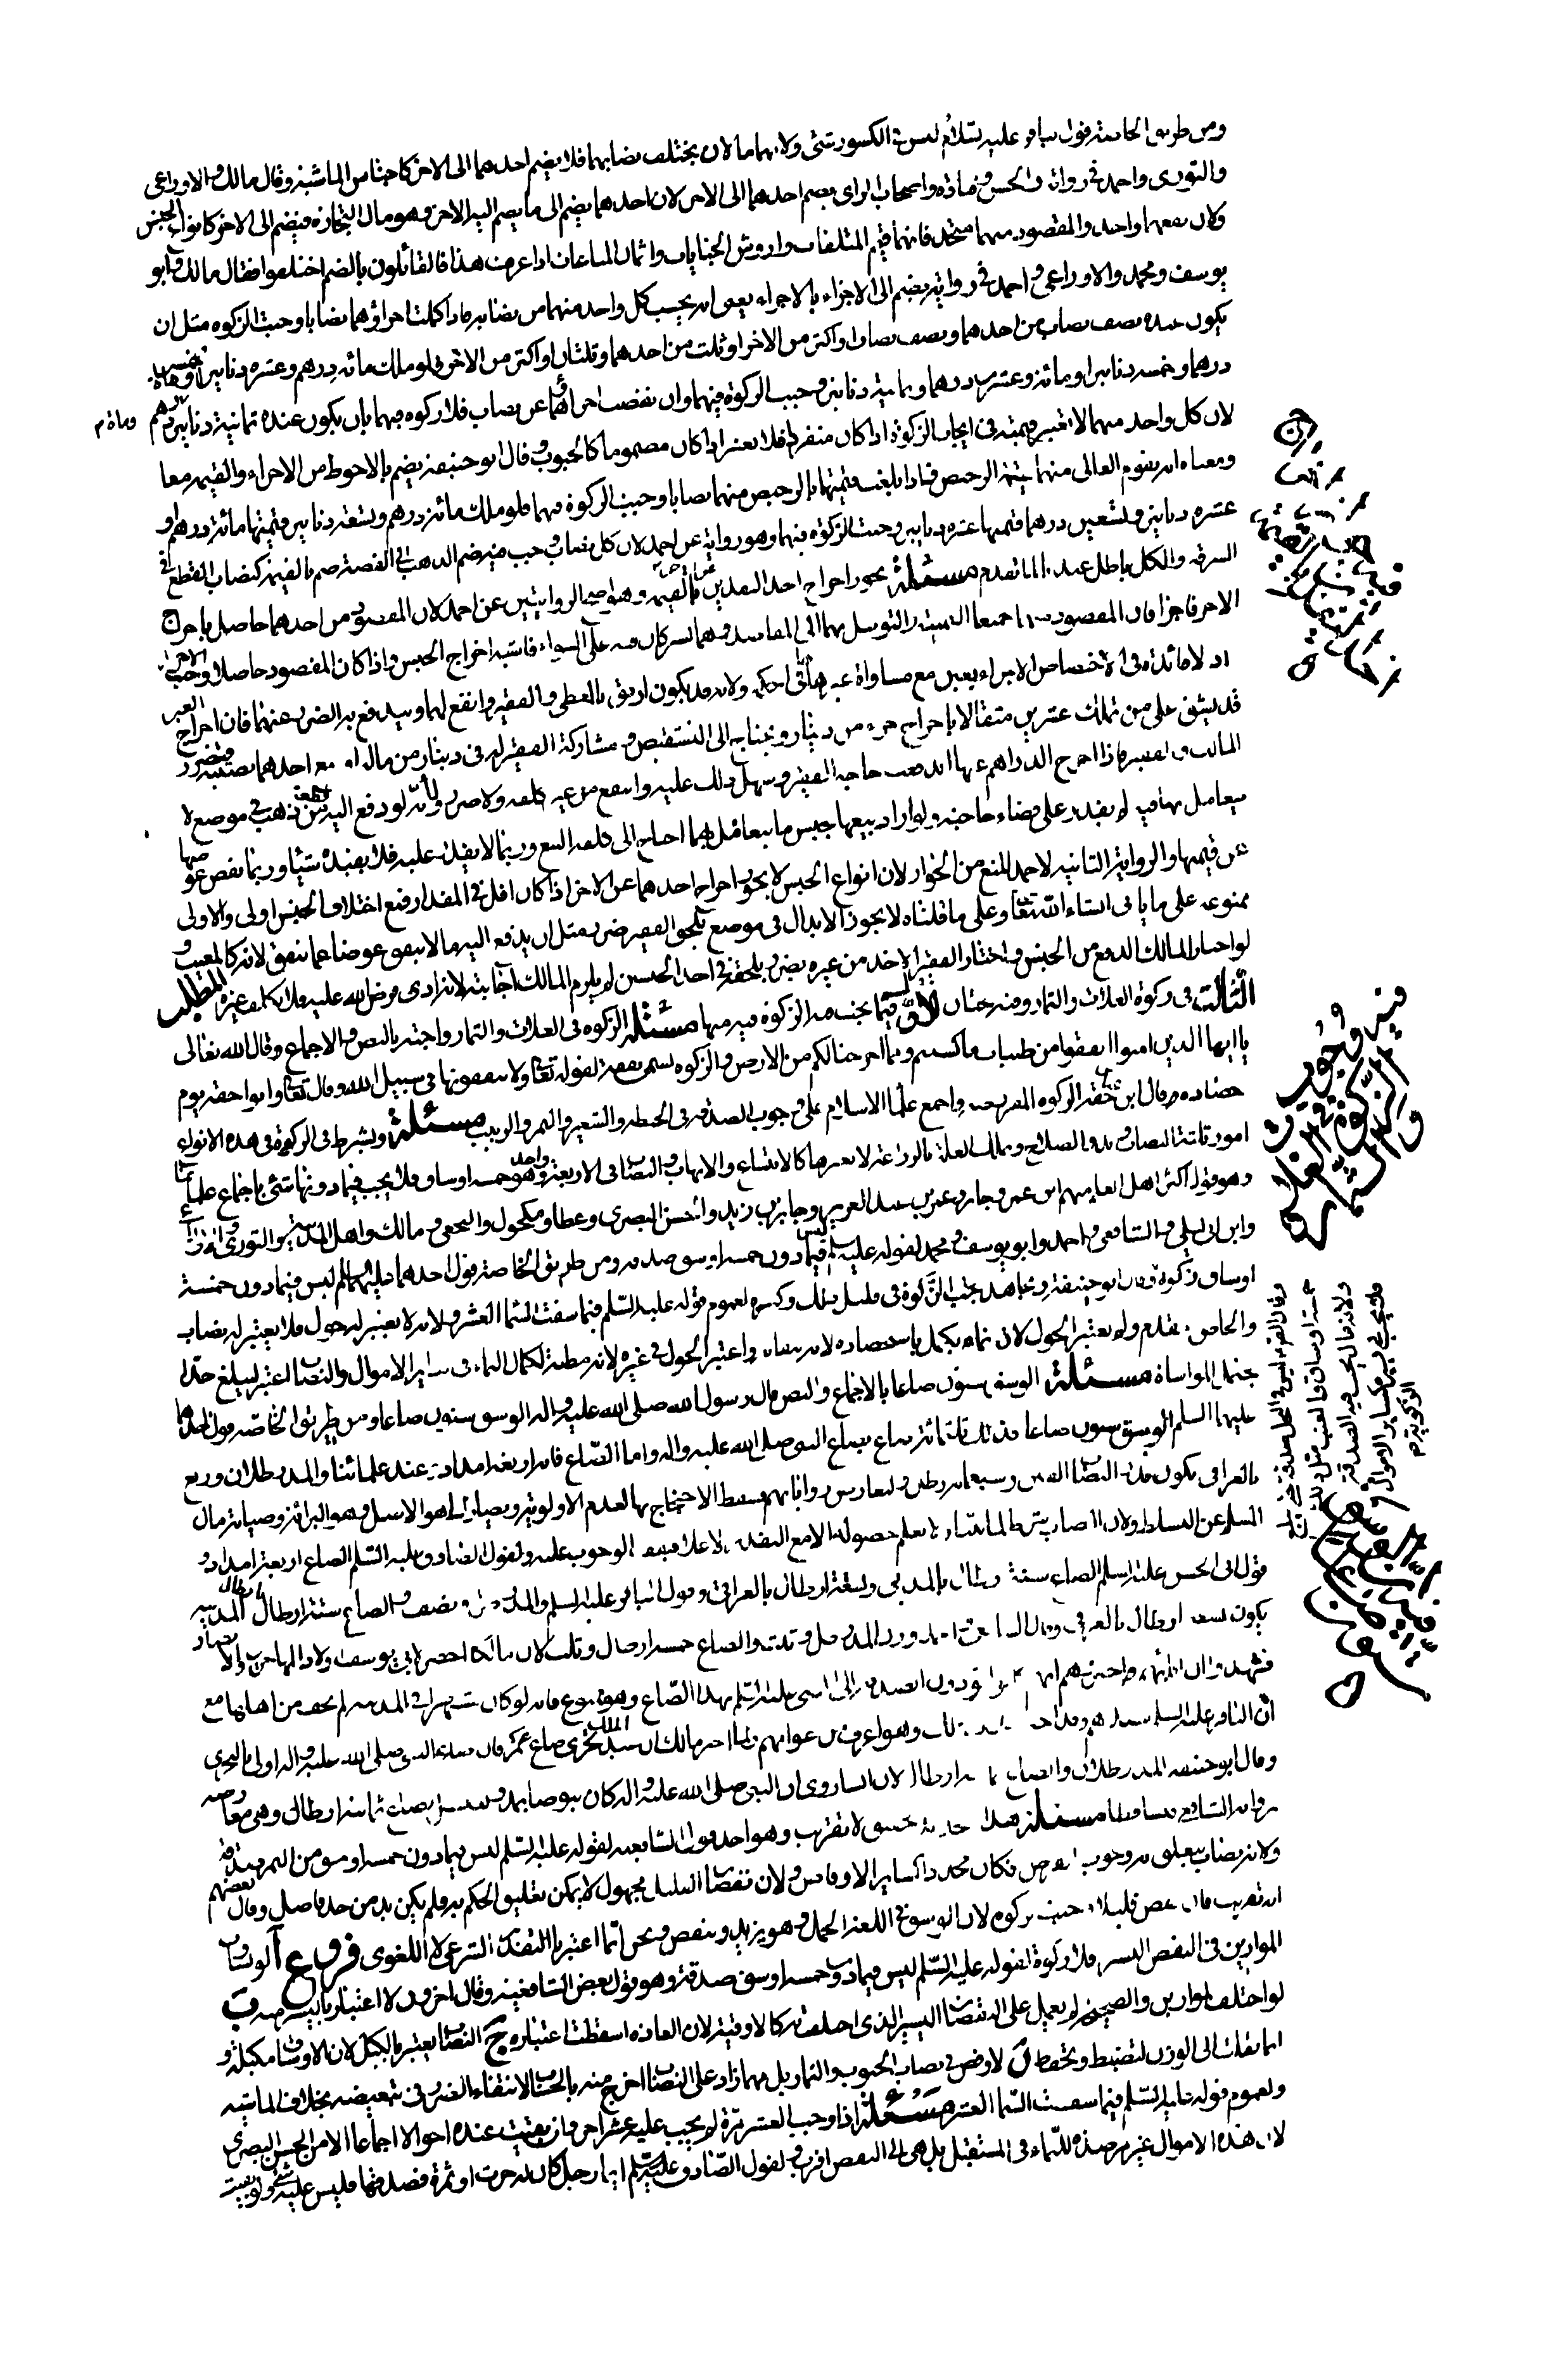 ومن طريق الخاصة قول الباقر عليه السلام ليس في الكسور شئ ولانهما مالان يختلف نصابهما فلا يضم احدهما الى الاخر كاجناس الماشية وقال مالك والاوزاعى
والثورى واحمد فى رواية والحسن وقتادة واصحاب الراى يضم احدهما الى الاخر لان احدهما يضم الى ما يضم اليه الاخر وهو مال التجارة فيضم الى الاخر كانواع الجنس
ولان نفعهما واحد والمقصود منهما متحد فانهما قيم المتلفات واروش الجنايات واثمان البياعات اذا عرفت هذا فالقائلون بالضم اختلفوا فقال مالك وابو
يوسف ومحمد والاوزاعى واحمد فى رواية يضم الى الاجزاء بالاجزاء يعنى انه يحسب كل واحد منهما من نصابه فاذا كملت اجزاؤهما نصابا وجبت الزكوة مثل ان
يكون عنده نصف نصاب من احدهما ونصف نصاب او اكثر من الاخر او ثلث من احدهما وثلثان او اكثر من الاخر فلو ملك مائة درهم وعشرة دنانير او
درهما وخمسة دنانير او مائة وعشرين درهما وثمانية دنانير وجبت الزكوة فيهما وان نقصت اجزاؤهما عن نصاب فلا زكوة فيهما بان يكون عنده ثمانية دنانير ومائة درهم
لان كل واحد منهما لا تعتبر قيمته فى ايجاب الزكوة اذا كان منفردا فلا يعتبر اذا كان مضموما كالحبوب وقال ابو حنيفة يضم بالاحوط من الاجزاء والقيمة معا
ومعناه انه يقوم الغالى منهما بقيمة الرخيص فاذا بلغت قيمتهما بالرخيص منهما نصابا وجبت الزكوة فيهما فلو ملك مائة درهم وتسعة دنانير قيمتها مائة درهم او
عشرة دنانير وتسعين درهما قيمتها عشرة دنانير وجبت الزكوة فيهما وهو رواية عن احمد لان كل نصاب وجب فيه ضم الذهب الى الفضة ضم بالقيمة كنصاب القطع فى
السرقة والكل باطل عندنا لما تقدم مسئلة يجوز اخراج احد النقدين عن الاخر بالقيمة وهو اصح الروايتين عن احمد لان المقصود من احدهما حاصل باخراج
الاخر فاجزا فان المقصود منهما جميعا الثمنية والتوسل بهما الى المقاصد وهما يشتركان فيه على السواء فاشبه اخراج الجنس واذا كان المقصود حاصلا وجب الاجزاء
اذ لا فائدة فى اختصاص الاجزاء بعين مع مساواة غيرها لها فى الحكمة ولانه قد يكون ارفق بالمعطى والفقير وانفع لهما ويندفع به الضرر عنهما فان اخراج العين
قد يشق على من يملك عشرين مثقالا باخراج جزء من دينار ويحتاج الى التشقيص ومشاركة الفقير له فى دينار من ماله او بيع احدهما نصيبه فيتضرر
المالك والفقير فاذا اخرج الدراهم عنها اندفعت حاجة الفقير وسهل ذلك عليه وانتفع من غير كلفة ولا ضرر ولانه لو دفع اليه قطعة من ذهب فى موضع لا
يتعامل بها فيه لم يقدر على قضاء حاجته ولو اراد بيعها بجنس ما يتعامل بها احتاج الى كلفة البيع وربما لا يقدر عليه فلا يفيده شيئا وربما نقص عوضها
عن قيمتها والرواية الثانية لاحمد المنع من الجواز لان انواع الجنس لا يجوز اخراج احدهما عن الاخر اذا كان اقل فى المقدار فمع اختلاف الجنس اولى والاولى
ممنوعة على ما ياتى انشاء الله تعالى وعلى ما قلناه لا يجوز الابدال فى موضع يلحق الفقير ضرر مثل ان يدفع اليه ما لا ينفق عوضا عما ينفق لانه كالمعيب و
لو اختار المالك الدفع من الجنس واختار الفقير الاخذ من غيره بضرر يلحقه فى اخذ الجنس لم يلزم المالك اجابته لانه ادى فرض الله عليه فلا يكلف غيره المطلب
الثالث فى زكوة الغلات والثمار وفيه بحثان الاول فيما تجب فيه الزكوة منها مسئلة الزكوة فى الغلات والثمار واجبة بالنص والاجماع وقال الله تعالى
يا ايها الذين امنوا انفقوا من طيبات ما كسبتم ومما اخرجنا لكم من الارض والزكوة تسمى نفقة لقوله تعالى ولا ينفقونها فى سبيل الله وقال تعالى واتوا حقه يوم
حصاده وقال ابن عباس حقه الزكوة المفروضة واجمع علماء الاسلام على وجوب الصدقة فى الحنطة والشعير والتمر والزبيب مسئلة ويشترط فى الزكوة فى هذه الانواع
امور ثلثة النصاب وبدو الصلاح وتملك الغلة بالزراعة لا بغيرها كالابتياع والاتهاب والنصاب فى الاربعة واحد وهو خمسة اوساق فلا يجب فيما دونها شئ باجماع علمائنا
وهو قول اكثر اهل العلم منهم ابن عمر وجابر وعمر بن عبد العزيز وجابر بن زيد والحسن البصرى وعطا ومكحول والنخعى ومالك واهل المدينة والثورى
وابن ابى ليلى والشافعى واحمد وابو يوسف ومحمد لقوله عليه السلم ليس فيما دون خمسة اوسق صدقة ومن طريق الخاصة قول احدهما عليهما السلم ليس فيما دون خمسة
اوساق زكوة وقال ابو حنيفة ومجاهد تجب الزكوة فى قليل ذلك وكثيره لعموم قوله عليه السلم فيما سقت السماء العشر ولانه لا يعتبر له حول فلا يعتبر له نصاب
والخاص يقدم ولم يعتبر الحول لان نماءه يكمل باستحصاده لا ببقائه واعتبر الحول فى غيره لانه مظنة لكمال النماء فى سائر الاموال والنصاب اعتبر ليبلغ حدا
يحتمل المواساة مسئلة الوسق ستون صاعا بالاجماع والنص قال رسول الله صلى الله عليه واله الوسق ستون صاعا ومن طريق الخاصة قول احدهما
عليهما السلم الوسق ستون صاعا فذلك ثلثمائة صاع بصاع النبى صلى الله عليه واله واما الصاع فانه اربعة امداد عند علمائنا والمد رطلان وربع
بالعراقى يكون قدر النصاب الفين وسبعمائة رطل ولتعارض رواياتهم يسقط الاحتجاج بها لعدم الاولوية ويصار الى ما هو الاصل وهو البرائة وصيانة مال
المسلم عن التسلط ولان النصاب شرط لما تقدم ولا يعلم حصوله الا مع التقدير الاعلى فيقف الوجوب عليه ولقول الصادق عليه السلم الصاع اربعة امداد و
قول ابى الحسن عليه السلم الصاع ستة ارطال بالمدنى وتسعة ارطال بالعراقى وقول الباقر عليه السلم والمد رطل ونصف والصاع ستة ارطال بارطال المدينة
يكون تسعة ارطال بالعراقى وقال الشافعى احمد المد رطل وثلث والصاع خمسة ارطال وثلث لان مالكا احضر لابى يوسف اولاد المهاجرين والانصار
فشهدوا ان اباءهم اخبروهم انهم كانوا يؤدون الصدقة الى النبى عليه السلم بهذا الصاع وهو ممنوع فانه لو كان مشهورا فى المدينة لم يخف من اهلها مع
ان الباقر عليه السلم سيدهم وقد اخبر بخلاف ذلك وهو اعرف من عوامهم
وقال ابو حنيفة المد رطلان والصاع ثمانية ارطال لان انسا روى ان النبى صلى الله عليه واله كان يتوضا بمد ويغتسل بصاع ثمانية ارطال وهى معارضة
برواية الشافعى فتساقطا مسئلة هذا التحديد تحقيق لا تقريب وهو احد قولى الشافعية لقوله عليه السلم ليس فيما دون خمسة اوسق من التمر صدقة
ولانه نصاب يتعلق به وجوب الفرض فكان محددا كسائر الاوقاص ولان نقصان القليل مجهول لا يمكن تعليق الحكم به فلم يكن بد من حد فاصل وقال بعضهم
انه تقريب فان نقص قليلا وجبت الزكوة لان الوسق فى اللغة الحمل وهو يزيد وينقص ونحن انما اعتبرنا التقدير الشرعى لا اللغوى فروع آ لو تساوت
الموازين فى النقص اليسير فلا زكوة لقوله عليه السلم ليس فيما دون خمسة اوسق صدقة وهو قول بعض الشافعية وقال اخرون لا اعتبار باليسير ب
لو اختلفت الموازين والصحيحة لم يعمل على النقصان اليسير الذى اختلفت به كالاوقية لان العادة اسقطت اعتباره ج النصاب يعتبر بالكيل لان الاوساق مكيلة و
انما نقلت الى الوزن لتضبط وتحفظ د لا وقص فى نصاب الحبوب والثمار بل مهما زاد على النصاب اخرج منه بالحساب لانتفاء الضرر فى تبعيضه بخلاف الماشية
ولعموم قوله عليه السلم فيما سقت السماء العشر مسئلة اذا وجب العشر مرة لم يجب عليه عشر اخر وان بقيت عنده احوالا اجماعا الا من الحسن البصرى
لان هذه الاموال غير مرصدة للنماء فى المستقبل بل هى الى النقص اقرب ولقول الصادق عليه السلم ايما رجل كان له حرث او ثمرة فصدقها فليس عليه شئ ولو بقيت
فيمن وجوب الزكوة فى الغلات والثمار